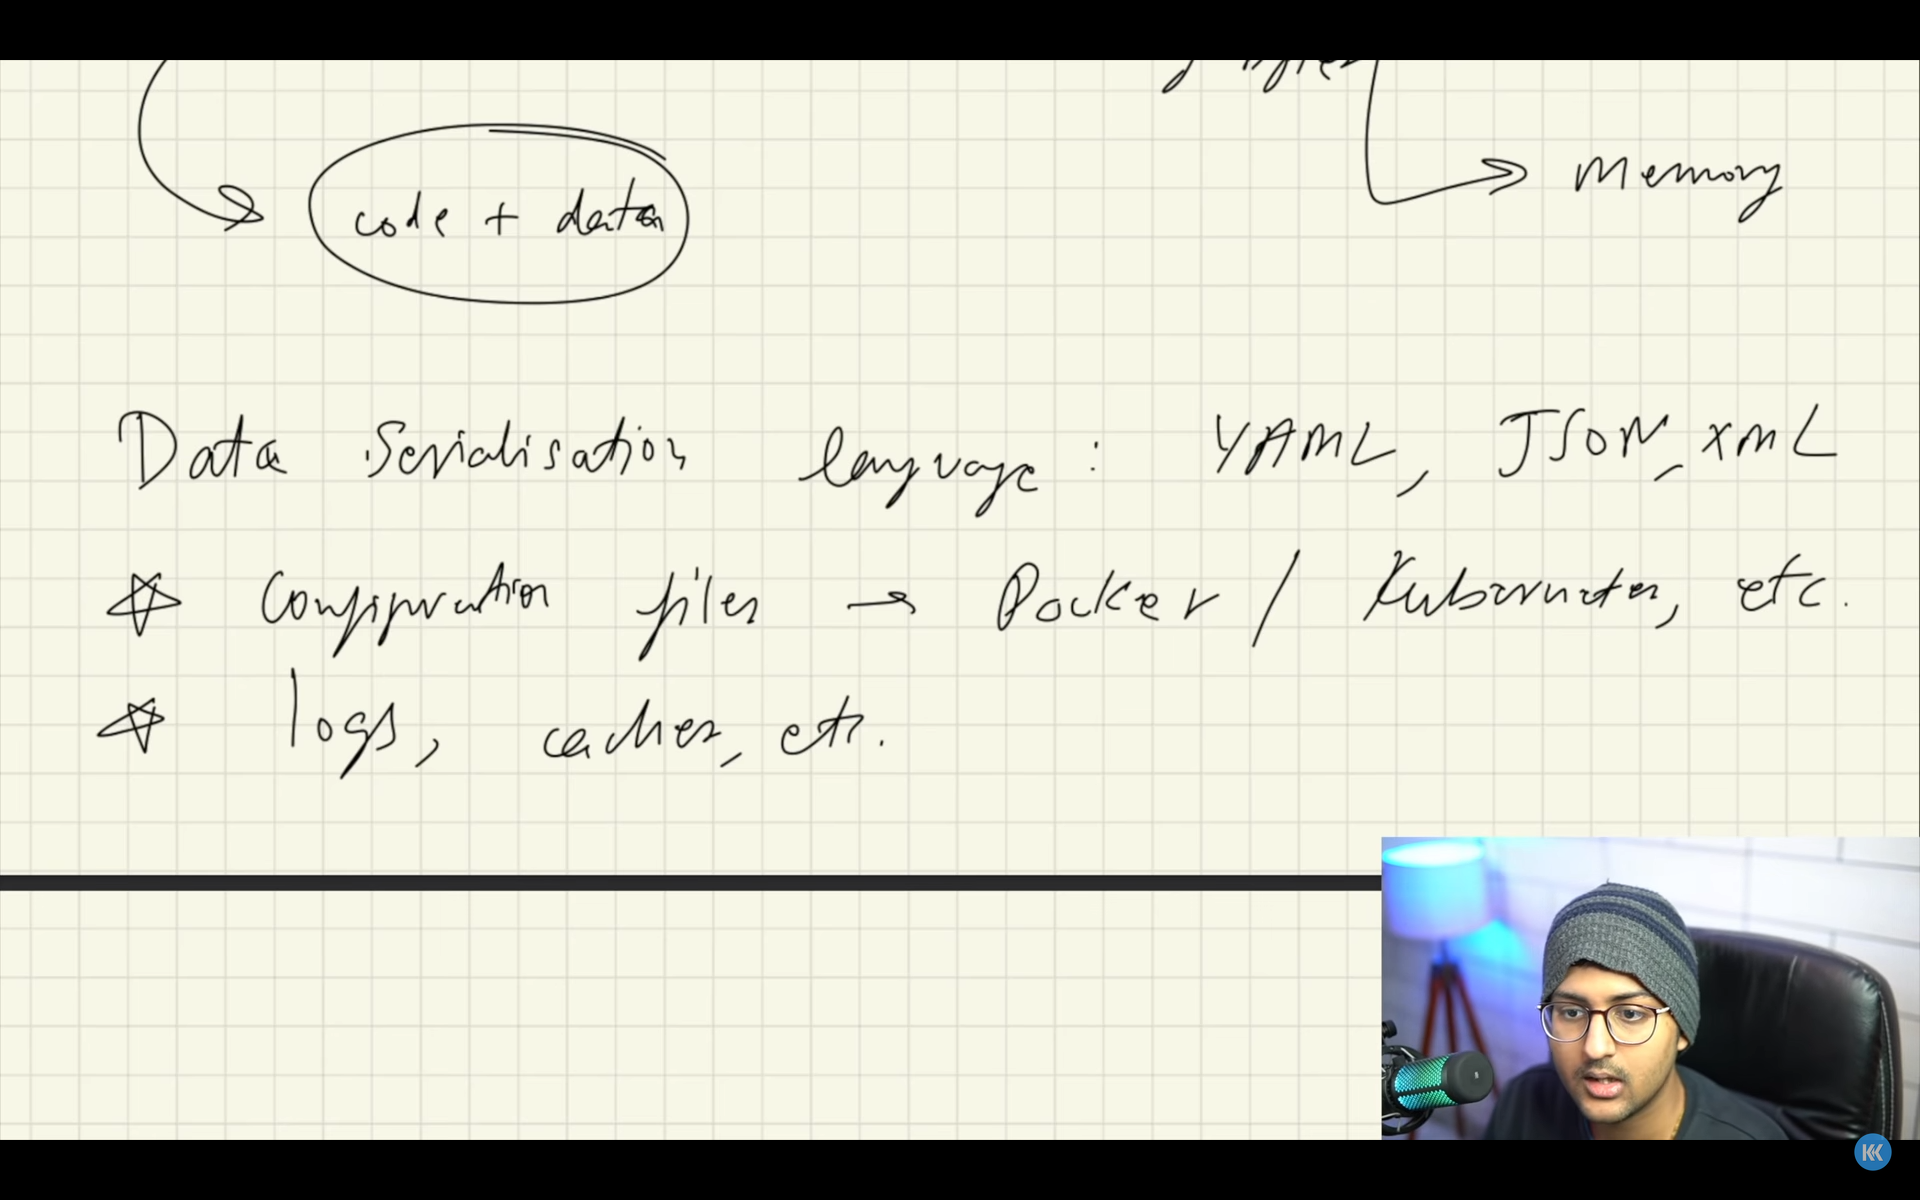 Memory
code + data
Data Serialisation language : YAML, JSON, XML
Configuration files → Docker / Kubernetes, etc.
logs, caches, etc.
KK